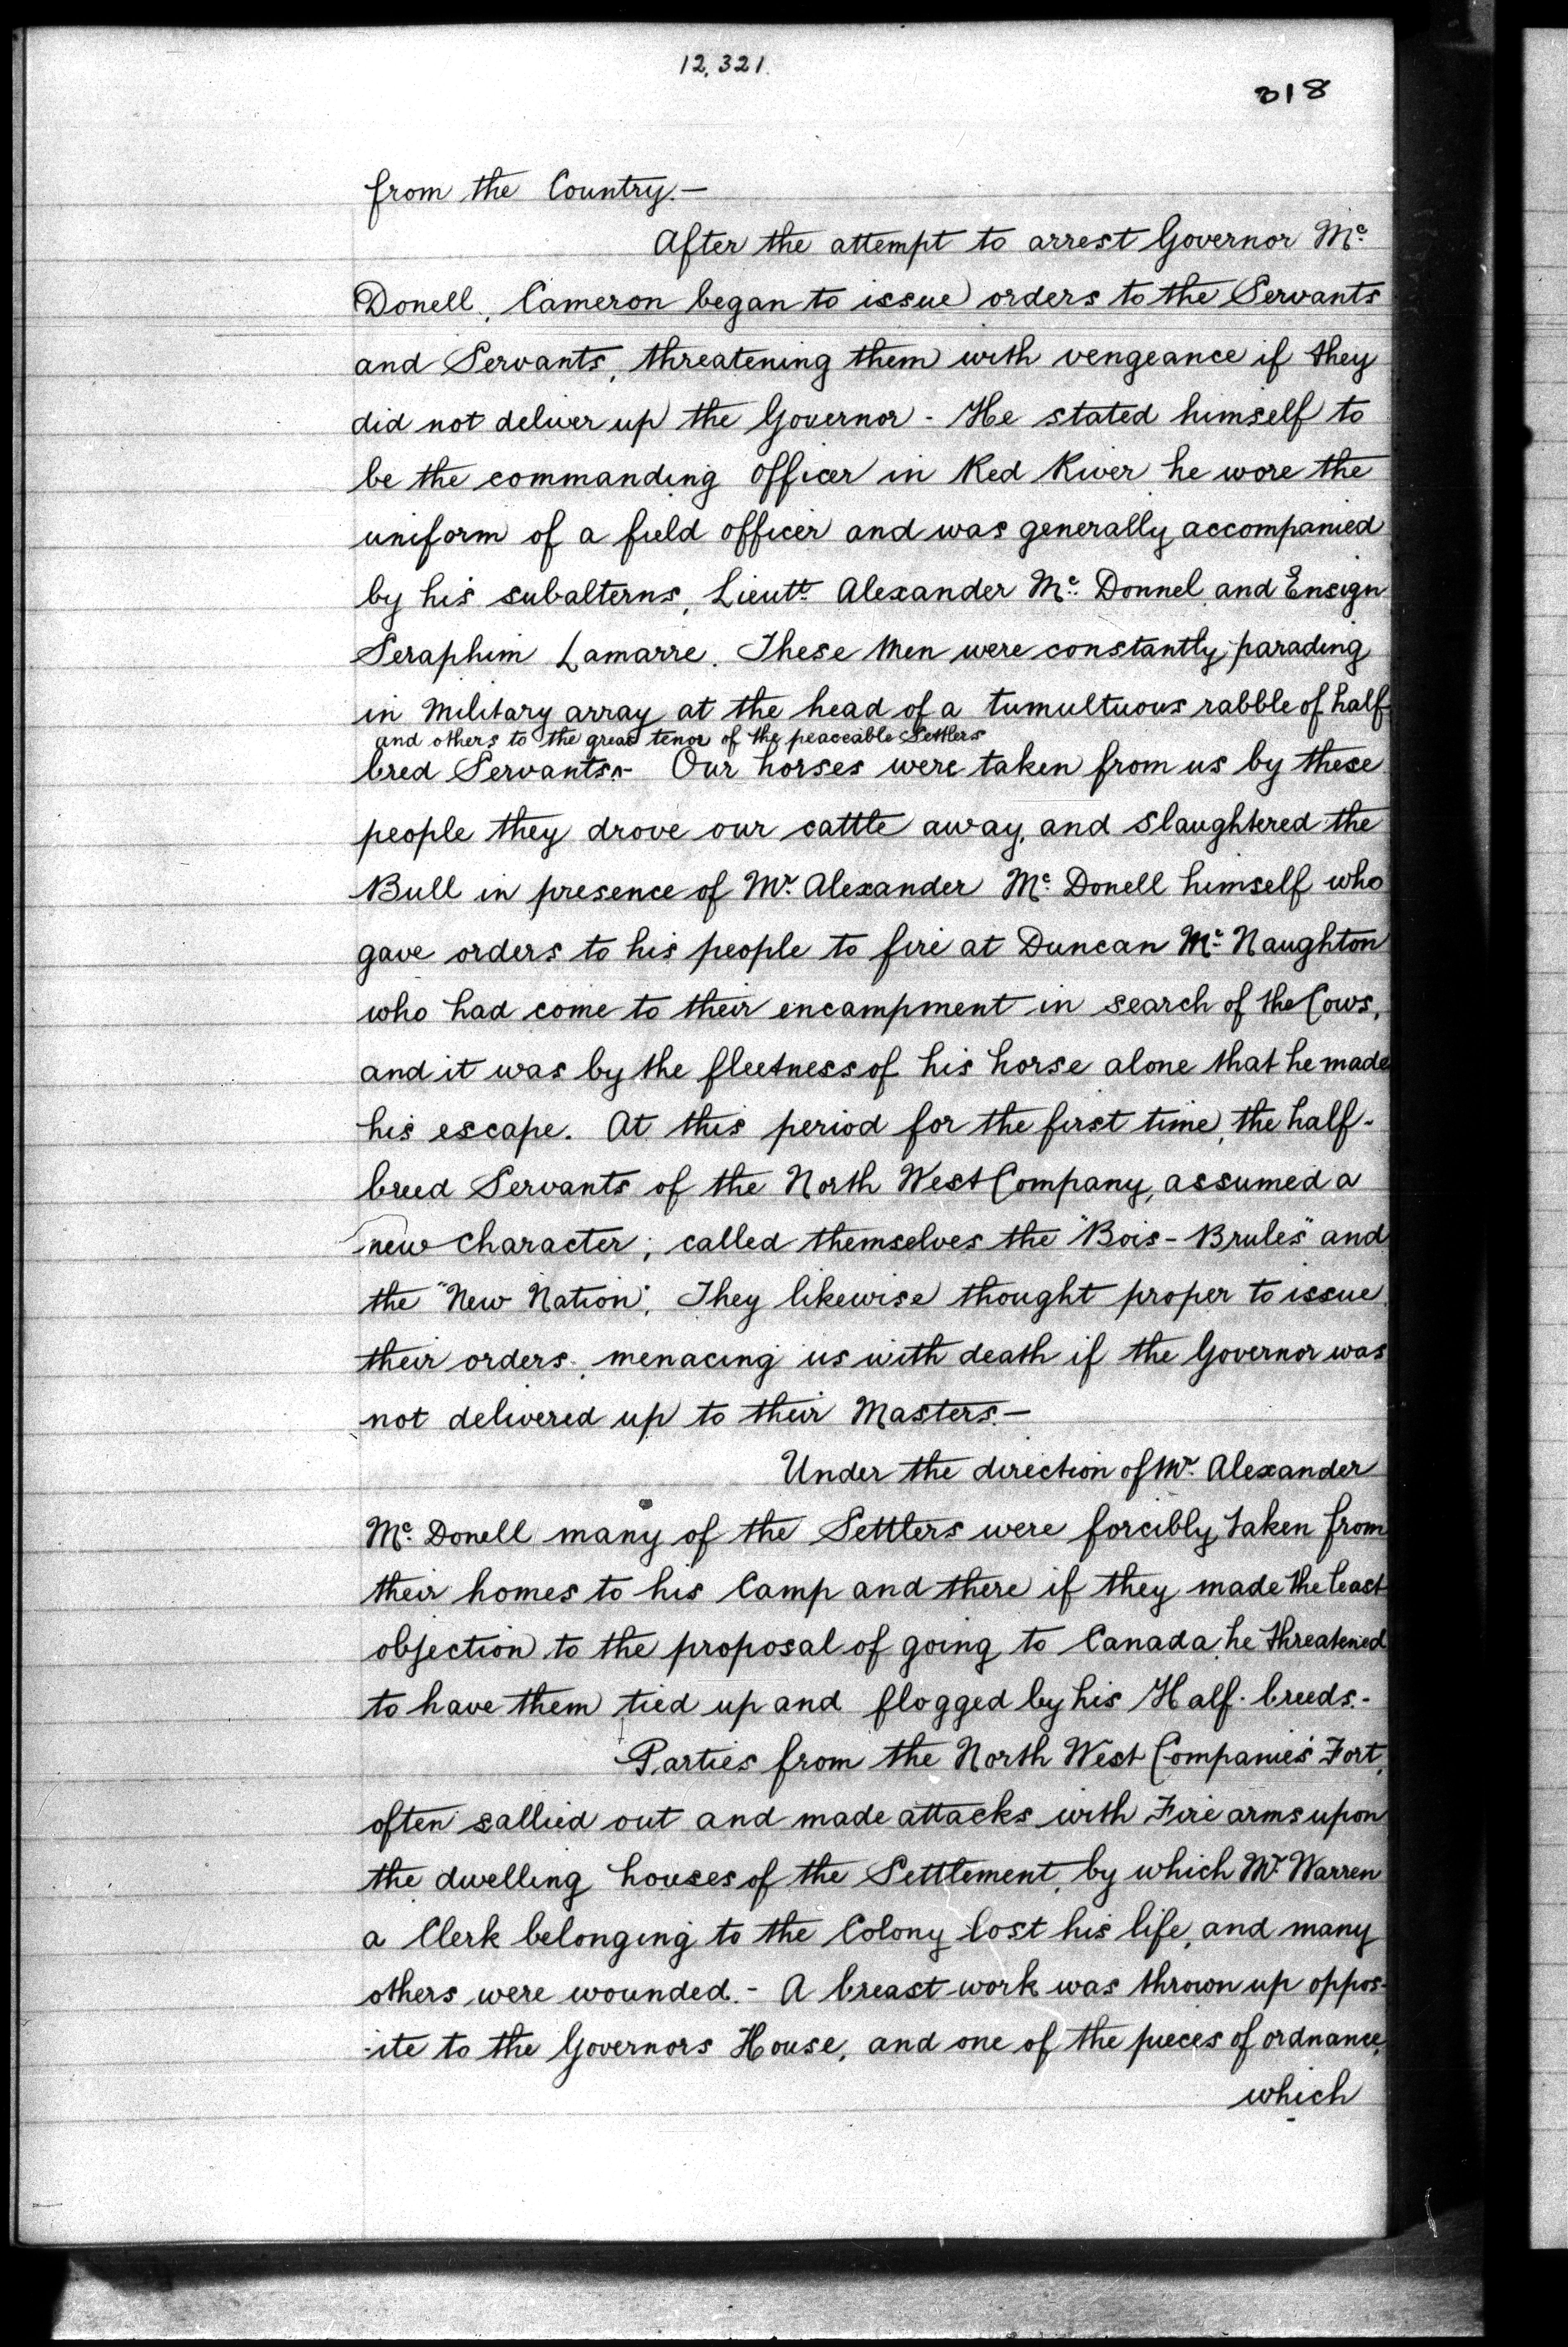 12,321.
318
from the Country.—
After the attempt to arrest Governor Mc.
Donell, Cameron began to issue orders to the Servants
and Servants, threatening them with vengeance if they
did not deliver up the Governor - He stated himself to
be the commanding officer in Red River he wore the
uniform of a field officer and was generally accompanied
by his subalterns, Lieutt. Alexander Mc. Donnel and Ensign
Seraphim Lamarre. These Men were constantly parading
in Military array at the head of a tumultuous rabble of half
and others to the great tenor of the peaceable Settlers
bred Servants^- Our horses were taken from us by these
people they drove our cattle away, and slaughtered the
Bull in presence of Mr. Alexander Mc. Donell himself who
gave orders to his people to fire at Duncan Mc. Naughton
who had come to their encampment in search of the Cows,
and it was by the fleetness of his horse alone that he made
his escape. At this period for the first time, the half-
breed Servants of the North West Company, assumed a
new character; called themselves the "Bois-Brules" and
the "New Nation". They likewise thought proper to issue
their orders, menacing us with death if the Governor was
not delivered up to their Masters.—
Under the direction of Mr. Alexander
Mc. Donell many of the Settlers were forcibly taken from
their homes to his Camp and there if they made the least
objection to the proposal of going to Canada, he threatened
to have them tied up and flogged by his Half-breeds.-
Parties from the North West Companies Fort,
often sallied out and made attacks with Fire arms upon
the dwelling houses of the Settlement, by which Mr. Warren
a Clerk belonging to the Colony lost his life, and many
others were wounded.- A breast-work was thrown up oppos-
-ite to the Governors House, and one of the pieces of ordnance,
which